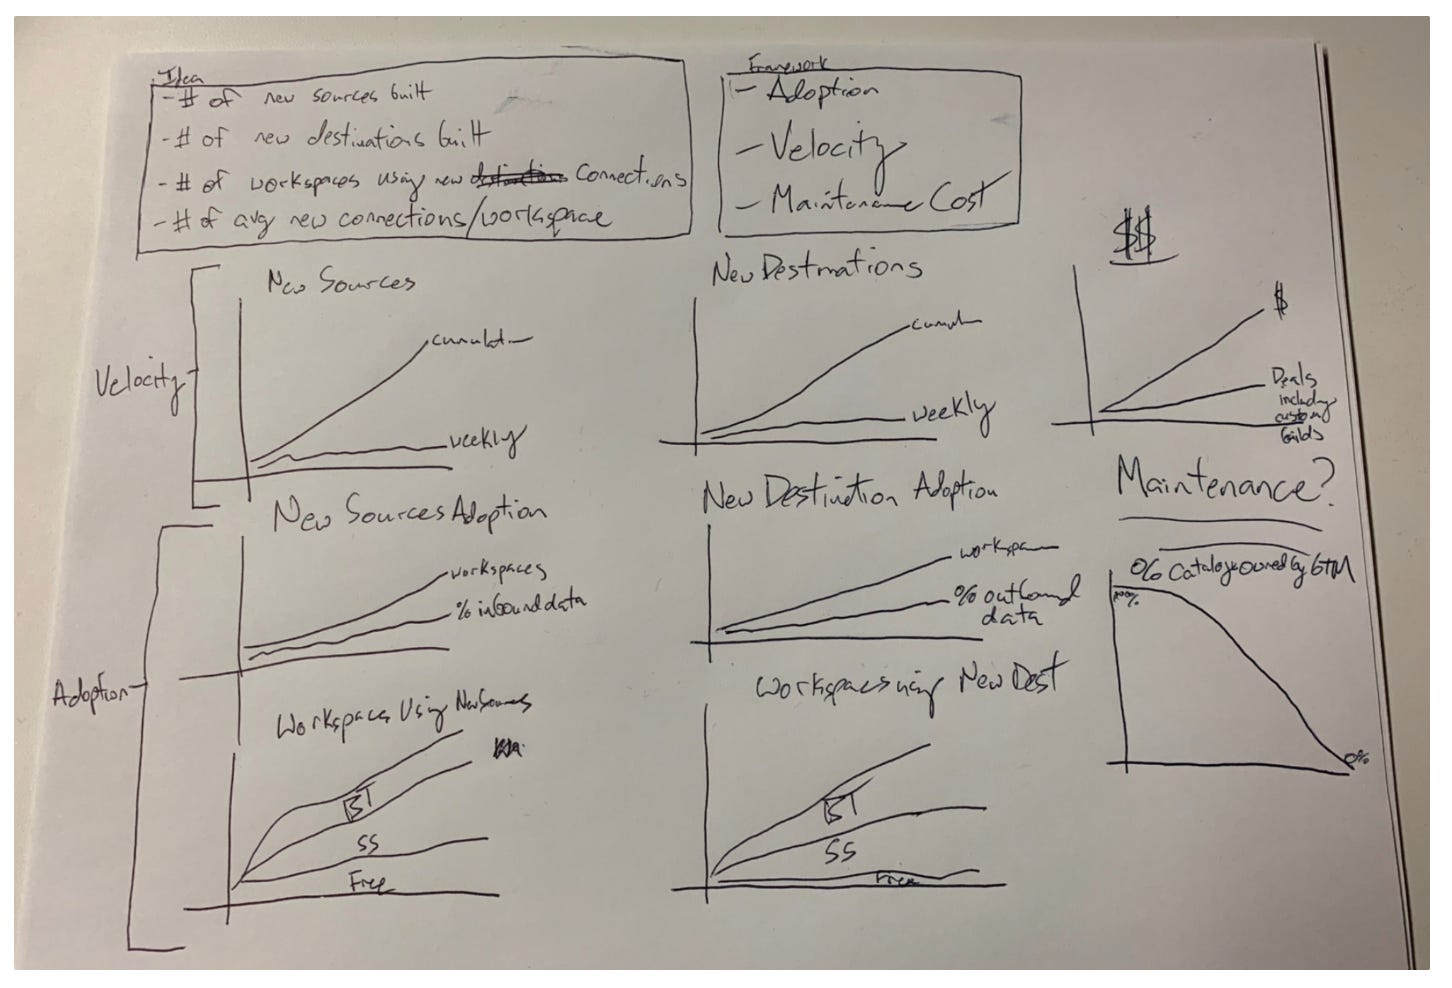 Idea
- # of new sources built
- # of new destinations built
- # of workspaces using new connections
- # of avg new connections/workspace
Framework
- Adoption
- Velocity
- Maintenance Cost
$$
Velocity
New Sources
weekly
New Destinations
weekly
$
Deals
including
custom
builds
Adoption
New Sources Adoption
workspaces
% inbound data
New Destination Adoption
% outbound
data
Maintenance?
% Catalogue owned by GTM
100%
0%
Workspaces Using New Sources
BT
SS
Free
Workspaces using New Dest
BT
SS
Free